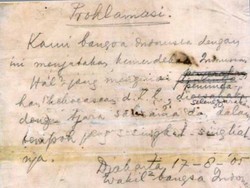 Proklamasi.
Kami bangsa Indonesia dengan
ini menjatakan kemerdekaan Indonesia
Hal2 jang mengenai
pemindahan kekoeasaan d.l.l., diselenggarakan
dengan tjara saksama dan dalam
tempoh jang sesingkat-singkat
nja.
Djakarta 17-8-'05
Wakil2 bangsa Indon